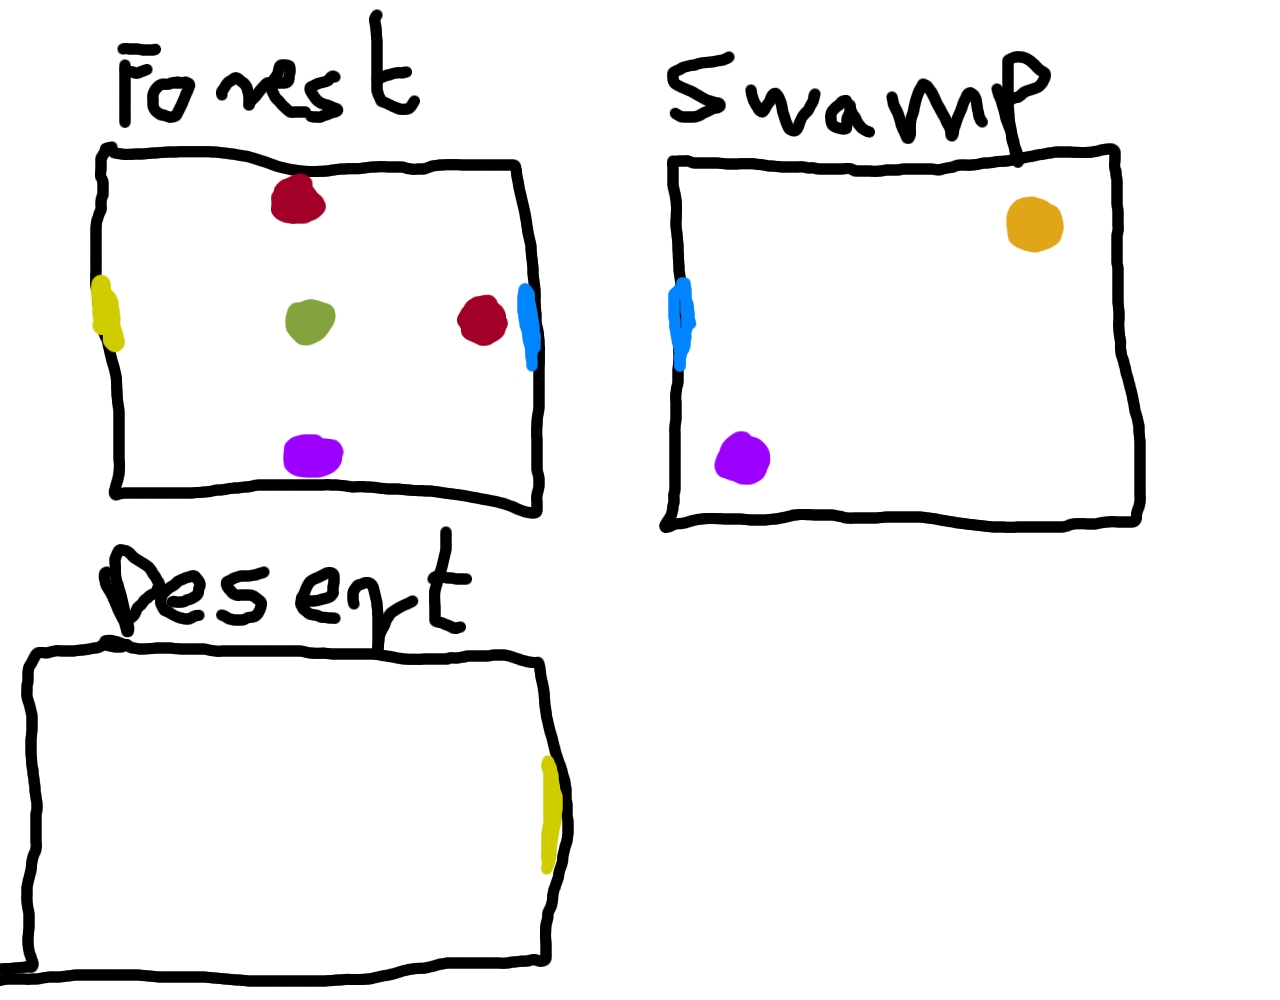 Forest
Swamp
Desert